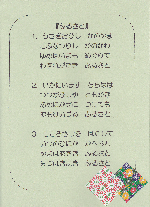 『ふるさと』
1. うさぎおいし かのやま
こぶなつりし かのかわ
ゆめはいまも めぐりて
わすれがたき ふるさと
2. いかにいます ちちはは
つつがなしや ともがき
あめにかぜに つけても
おもいいずる ふるさと
3. こころざしを はたして
いつのひにか かえらん
やまはあおき ふるさと
みずはきよき ふるさと